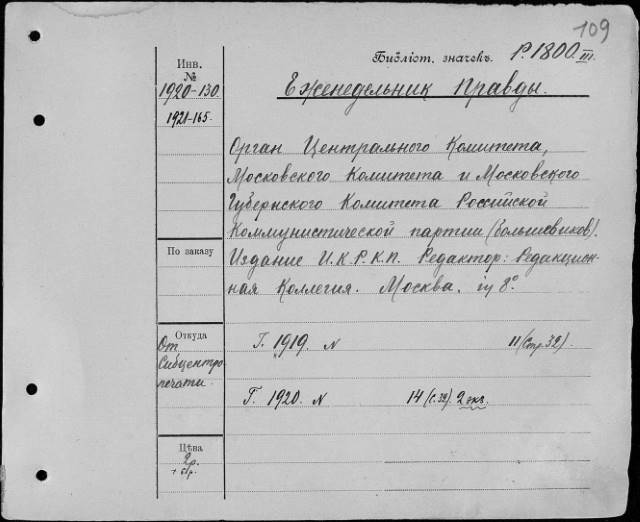 109
Библіот. значекъ. Р. 1800 III.
Инв.
№
1920-130
1921-165.
Еженедельник Правды.
Орган Центрального Комитета,
Московского Комитета и Московского
Губернского Комитета Российской
Коммунистической партии (большевиков).
Издание Ц.К.Р.К.П. Редактор: Редакцион-
ная Коллегия. Москва. in 8°.
По заказу
Откуда
От
Сибцентро-
печати
Г. 1919. N 11 (Стр. 32).
Г. 1920. N 14 (С. 32). 2 экз.
Цѣна
2р.